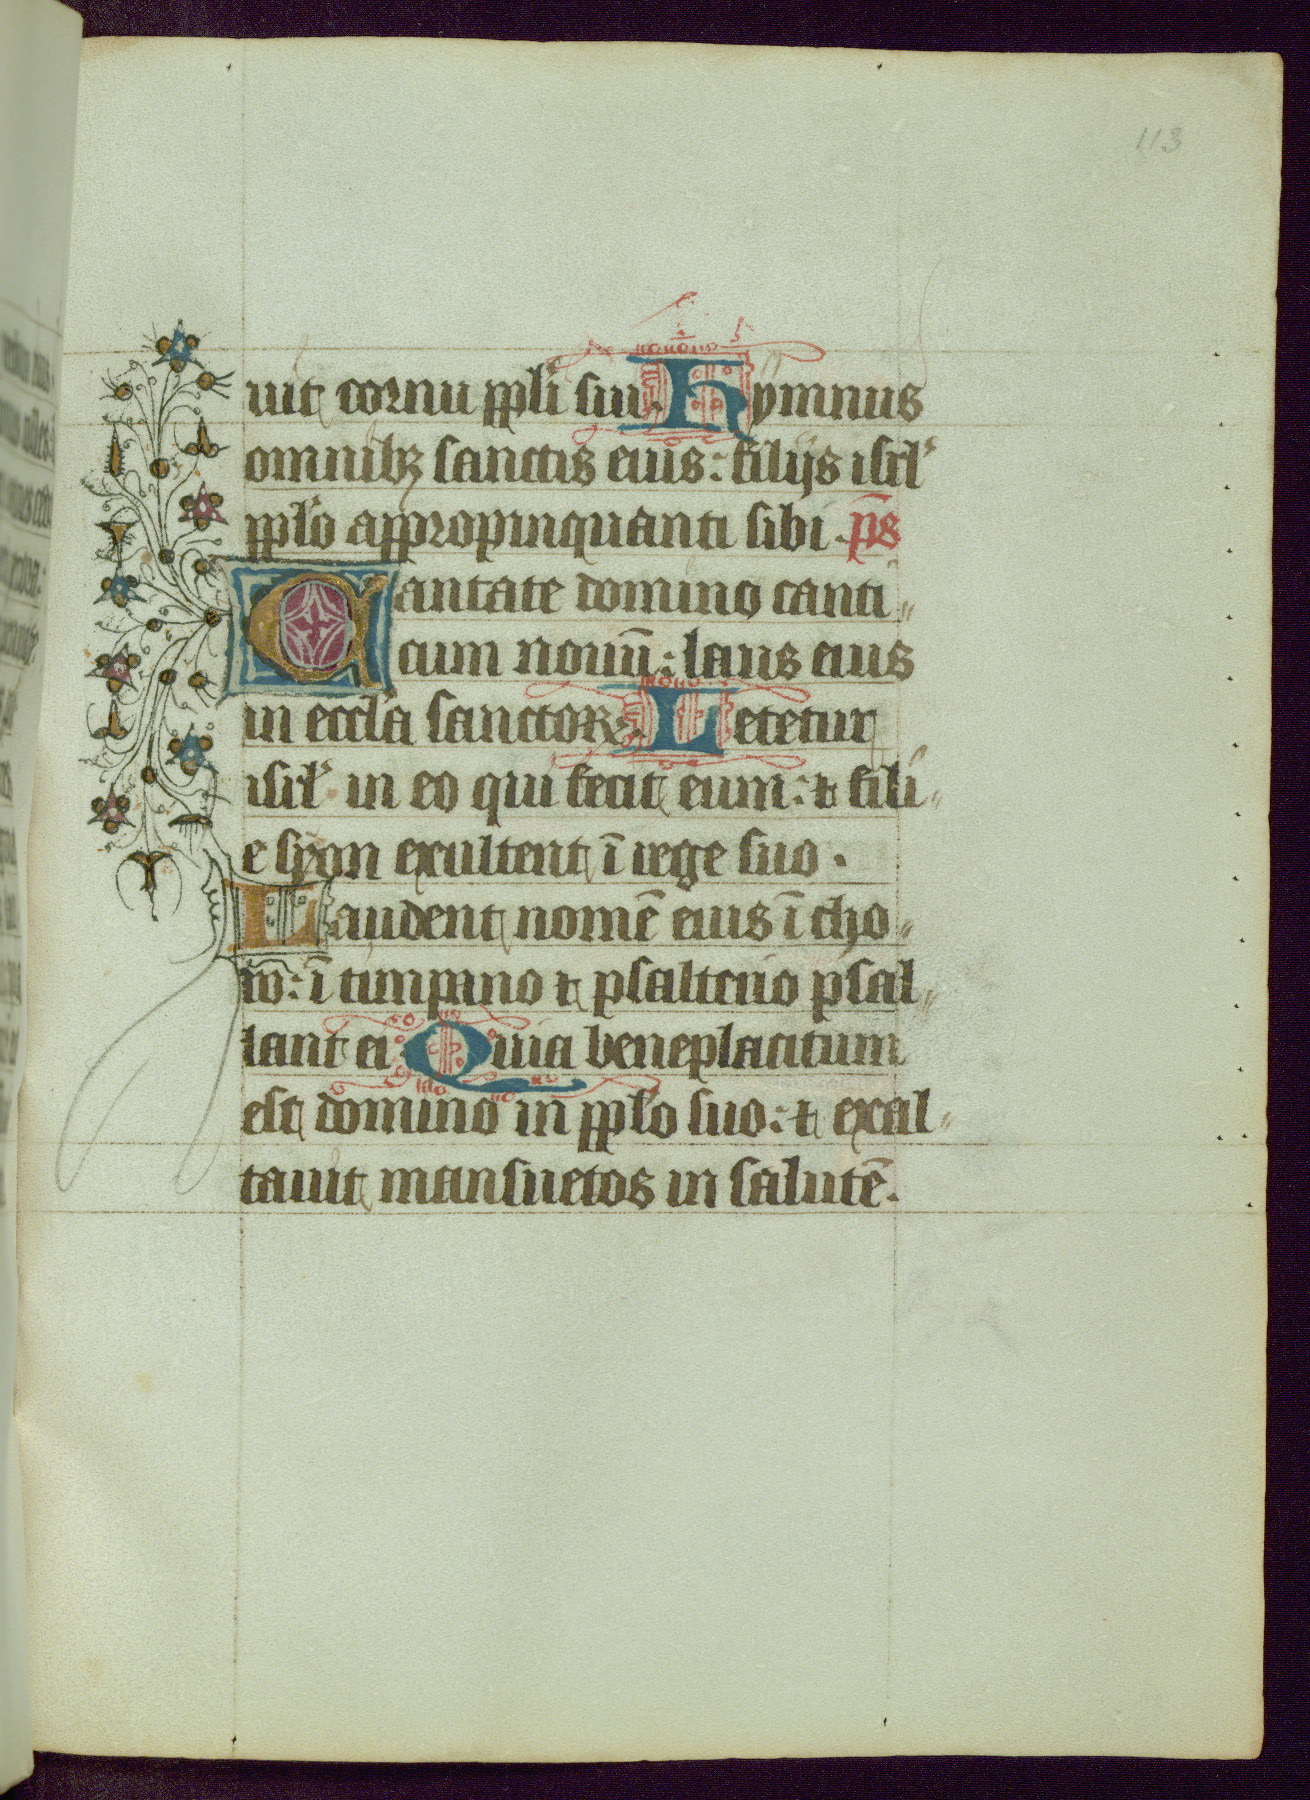 113
uit cornu pp̄li sui. Hymnus
omnibꝫ sanctis eius: filijs isrl'
pp̄lo appropinquanti sibi. p̄s
Cantate domino canti
cum nouū: laus eius
in eccl̄a sanctoꝝ. Letetur
isrl' in eo qui fecit eum: ⁊ fili
e syon exultent ī rege suo.
Laudent nomē eius ī cho
ro: ī timpano ⁊ psalterio psal
lant ei. Quia beneplacitum
est domino in pp̄lo suo: ⁊ exal
tauit mansuetos in salutē.